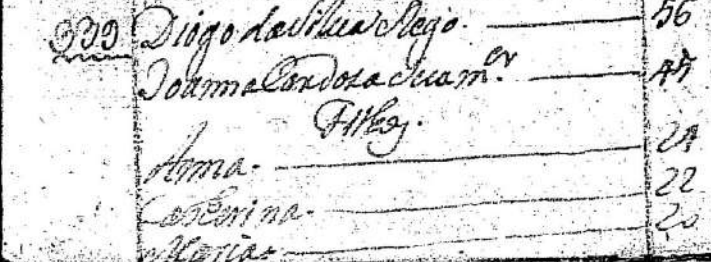 339 Diogo da Silva Rego. 56
Joanna Cardoza sua m.er 47
Filhos.
Anna. 24
Catherina. 22
Maria. 20